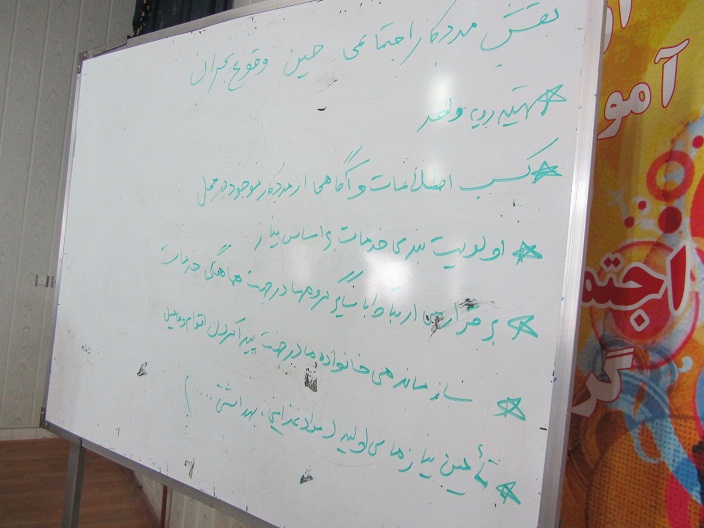 نقش مددکار اجتماعی حین وقوع بحران
تهیه رویه واحد
کسب اطلاعات و آگاهی از مددکار موجود در محل
اولویت بندی خدمات بر اساس نیاز
برقراری ارتباط با سایر گروهها در جهت هماهنگی خدمات
سازماندهی خانواده ها در جهت پیدا کردن اقوام و فامیل
تأمین نیازهای اولیه (مواد غذایی، بهداشتی ...)
آمو
اجتم
گر